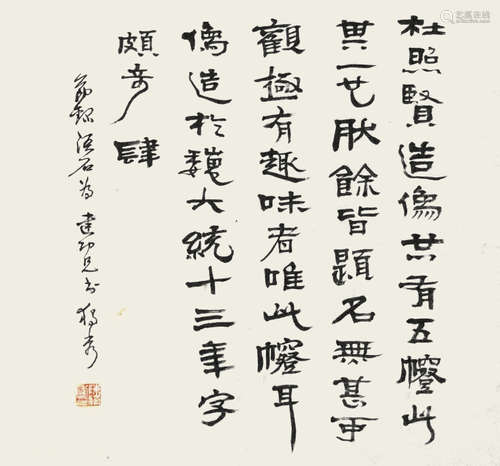 杜照賢造像共有五幢此
其一也耿餘皆題名無甚可
觀極有趣味者唯此幢耳
像造於魏大統十三年字
頗奇肆
節錄語石為建功兄書獨秀